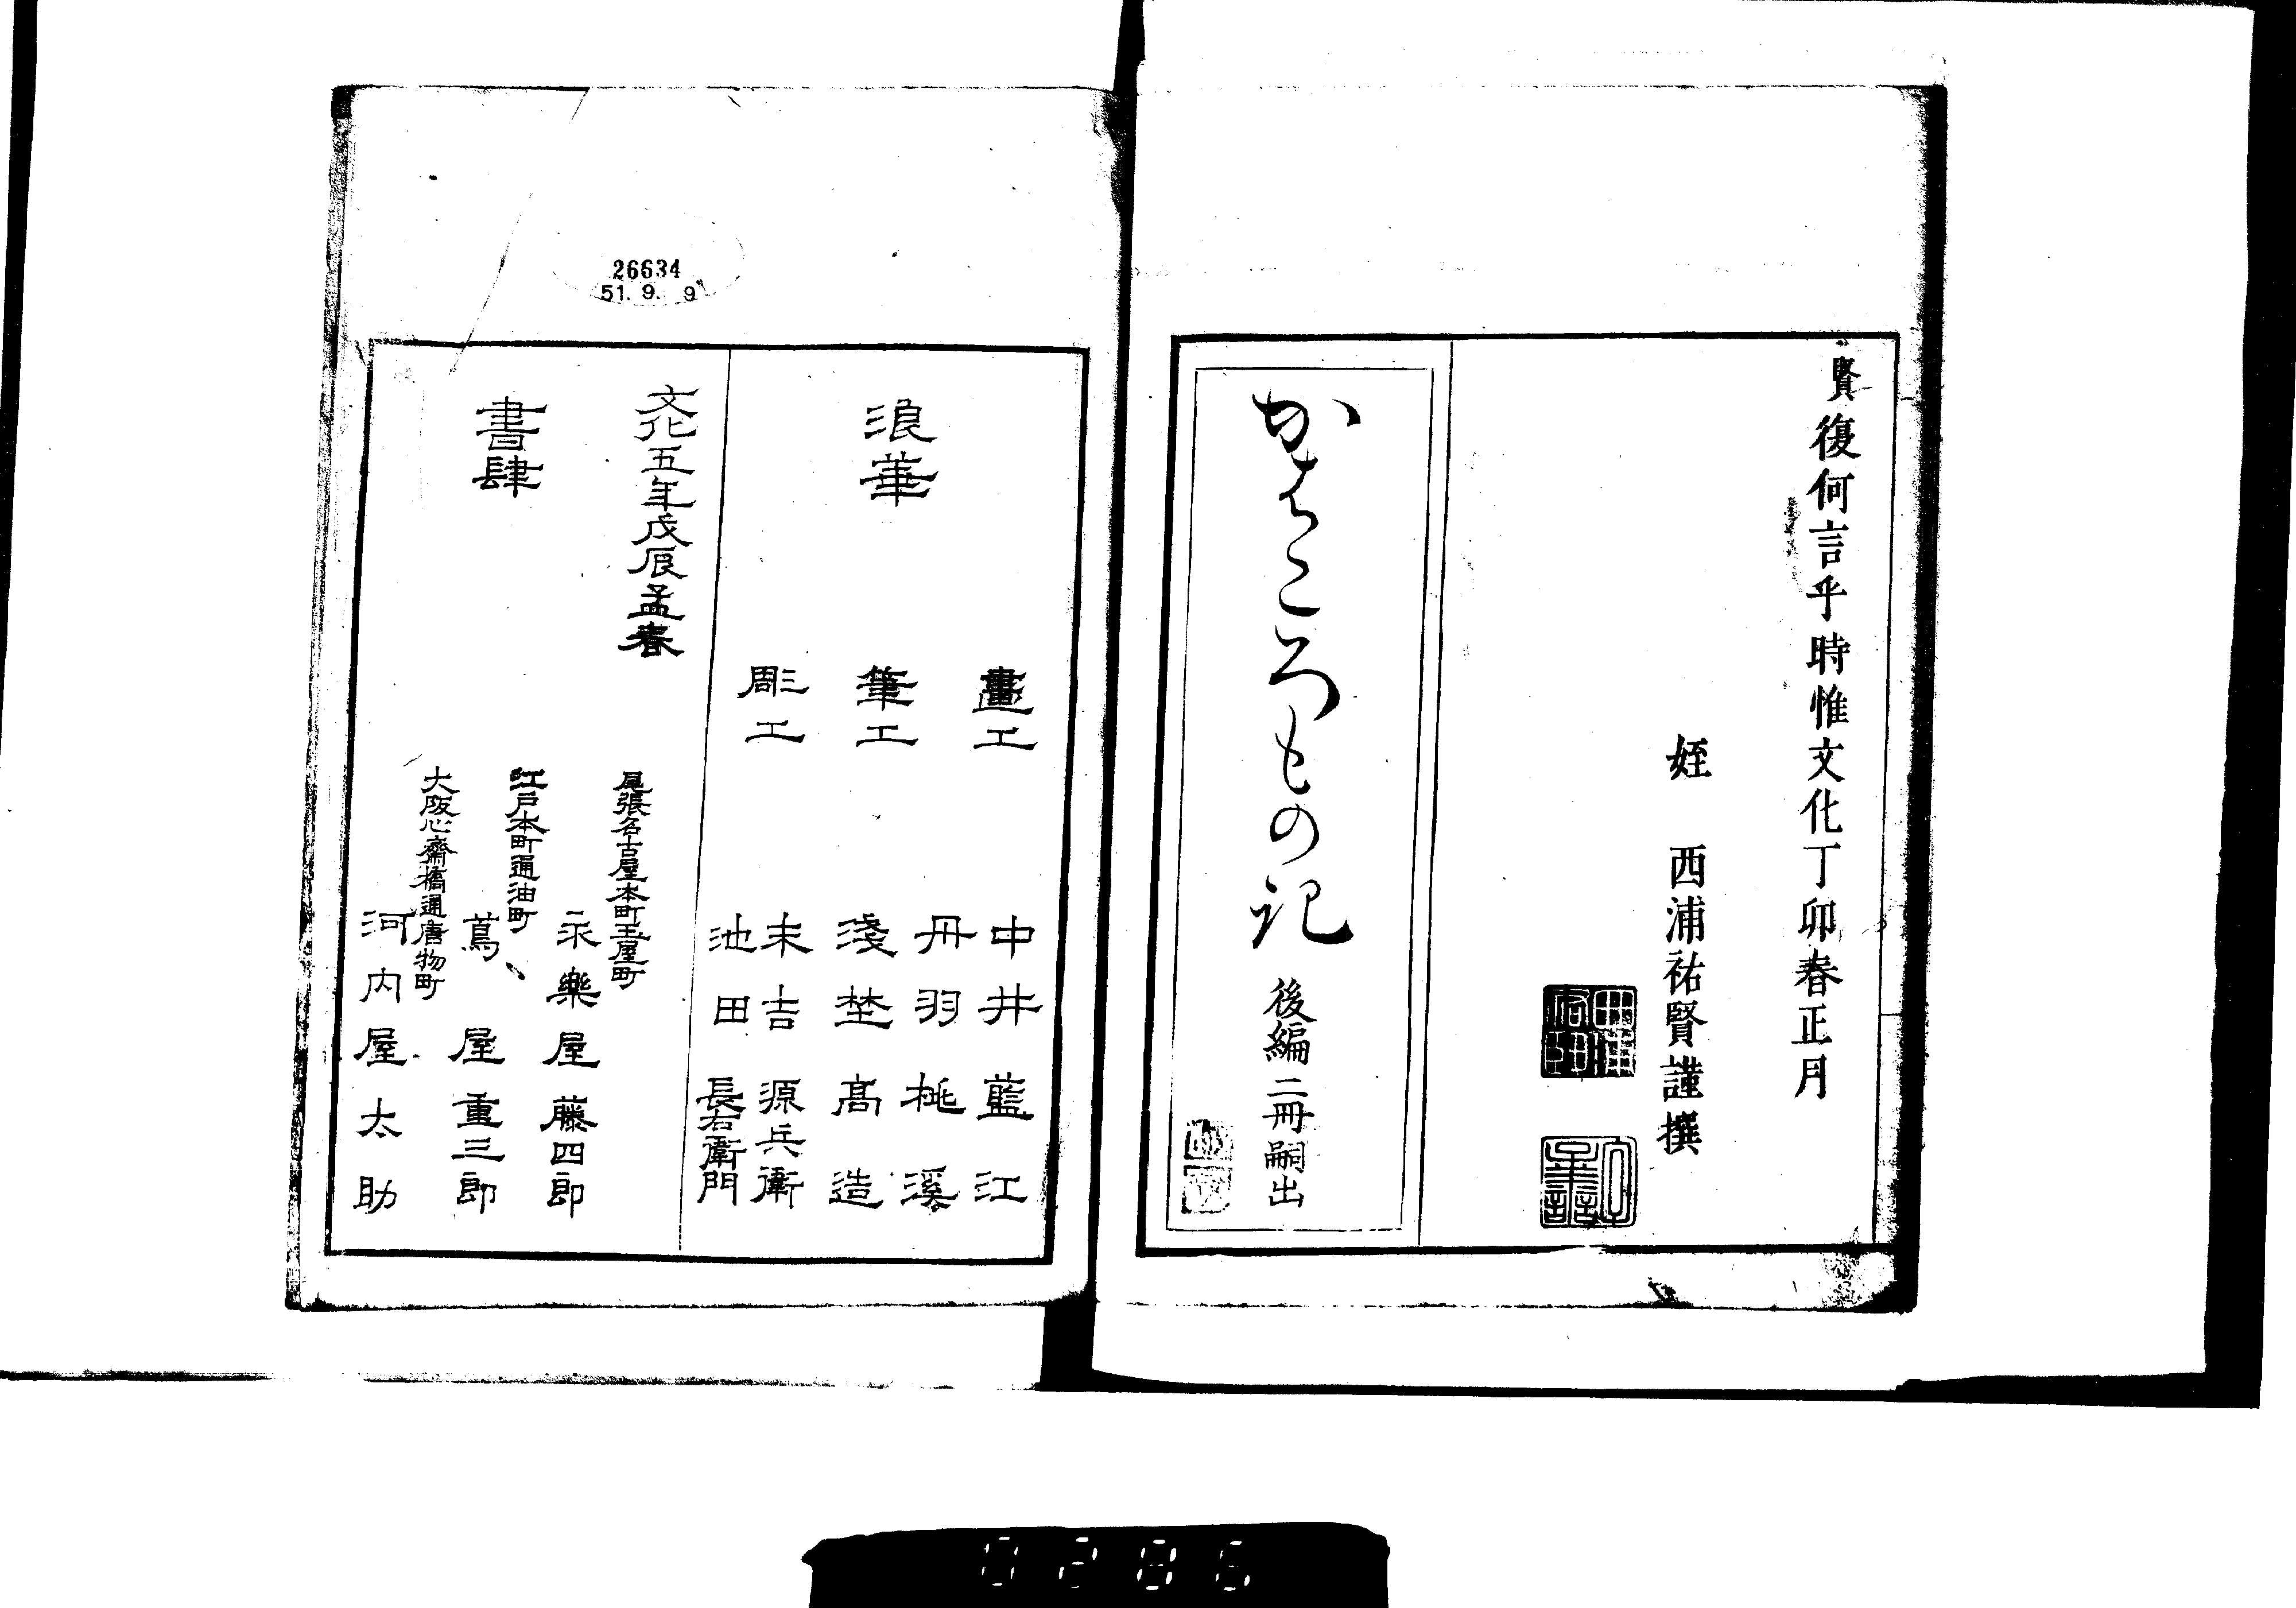 賢復何言乎時惟文化丁卯春正月
姪　西浦祐賢謹撰
からころもの記　後編二冊嗣出
26634
51. 9. 9
浪華
畫工　中井藍江
丹羽桃溪
筆工　淺埜髙造
彫工　末吉源兵衛
池田長右衛門
文化五年戊辰孟春
書肆
尾張名古屋本町玉屋町
永樂屋藤四郎
江戸本町通油町
蔦屋重三郎
大阪心齋橋通唐物町
河内屋太助
0286